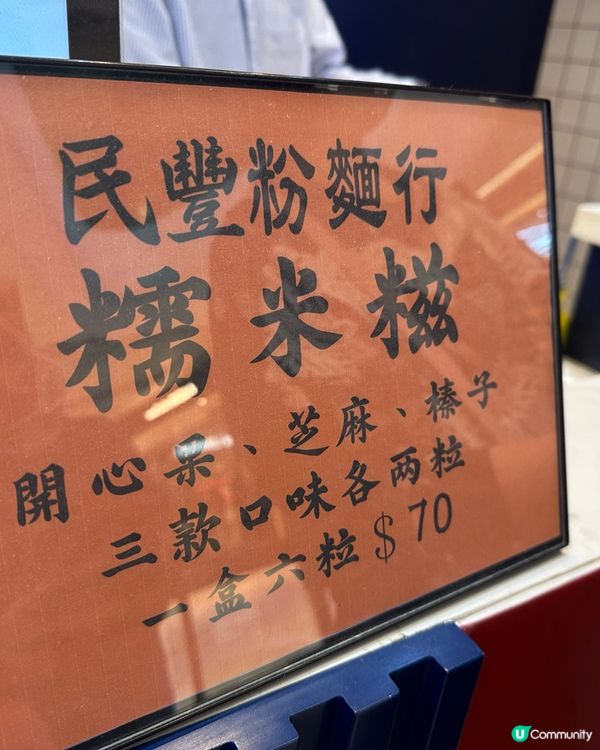 民豐粉麵行
糯米糍
開心果、芝麻、榛子
三款口味各两粒
一盒六粒$70
U Community